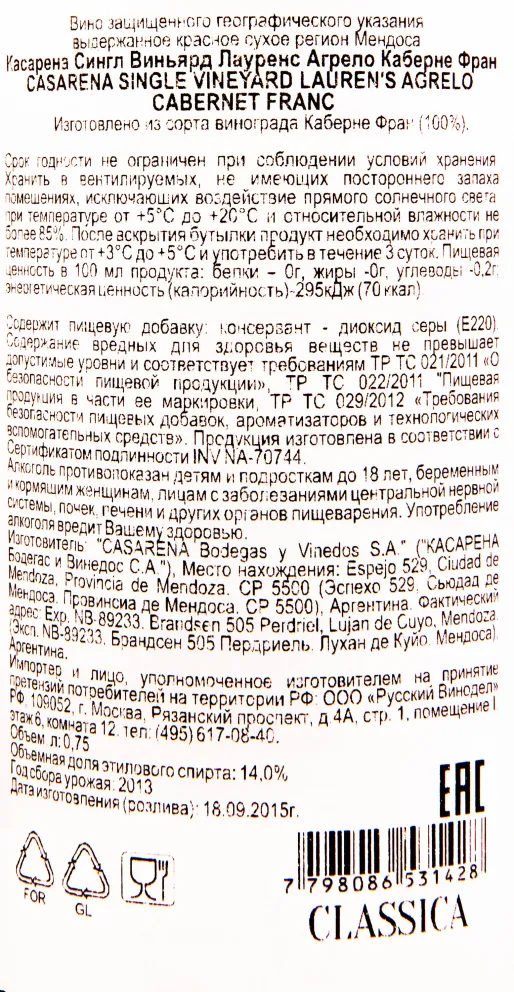 Вино защищенного географического указания
выдержанное красное сухое регион Мендоса
Касаренэ Сингл Виньярд Лауренс Агрело Каберне Фран
CASARENA SINGLE VINEYARD LAUREN'S AGRELO
CABERNET FRANC
Изготовлено из сорта винограда Каберне Фран (100%).
Срок годности не ограничен при соблюдении условий хранения
Хранить в вентилируемых, не имеющих постороннего запаха
помещениях, исключающих воздействие прямого солнечного света
при температуре от +5°С до +20°С и относительной влажности не
более 85%. После вскрытия бутылки продукт необходимо хранить при
температуре от +3°С до +5°С и употребить в течение 3 суток. Пищевая
ценность в 100 мл продукта: белки – 0г, жиры -0г, углеводы -0,2г,
энергетическая ценность (калорийность)-295кДж (70 ккал)
Содержит пищевую добавку: консервант - диоксид серы (Е220)
Содержание вредных для здоровья веществ не превышает
допустимые уровни и соответствует требованиям ТР ТС 021/2011 «О
безопасности пищевой продукции», ТР ТС 022/2011 "Пищевая
продукция в части ее маркировки, ТР ТС 029/2012 «Требования
безопасности пищевых добавок, ароматизаторов и технологических
вспомогательных средств». Продукция изготовлена в соответствии с
Сертификатом подлинности INV NA-70744.
Алкоголь противопоказан детям и подросткам до 18 лет, беременным
и кормящим женщинам, лицам с заболеваниями центральной нервной
системы, почек, печени и других органов пищеварения. Употребление
алкоголя вредит Вашему здоровью.
Изготовитель: "CASARENA Bodegas y Vinedos S.A." ("КАСАРЕНА
Бодегас и Винедос С.А."), Место нахождения: Espejo 529, Ciudad de
Mendoza, Provincia de Mendoza. CP 5500 (Эспехо 529, Сьюдад де
Мендоса. Провинсиа де Мендоса. СР 5500), Аргентина. Фактический
адрес: Exp. NB-89233. Brandsen 505 Perdriel, Lujan de Cuyo, Mendoza
(Эксп. NB-89233. Брандсен 505 Пердриель. Лухан де Куйо. Мендоса).
Аргентина.
Импортер и лицо, уполномоченное изготовителем на принятие
претензий потребителей на территории РФ: ООО «Русский Винодел»
РФ, 109052, г. Москва, Рязанский проспект, д 4А, стр. 1, помещение I
этаж 6, комната 12. тел: (495) 617-08-40.
Объем л: 0,75
Объемная доля этилового спирта: 14,0%
Год сбора урожая: 2013
Дата изготовления (розлива): 18.09.2015г.
EAC
FOR
GL
7 798086 531428
CLASSICA